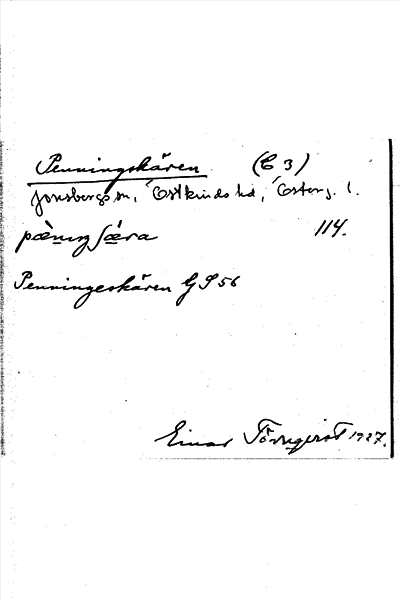 Penningskären (C 3)
Jonsbergs sn, Östkinds hd, Österg. l.
pæ̀niŋʃæra 114.
Penningeskären GS 56
Einar Törnqvist 1927.